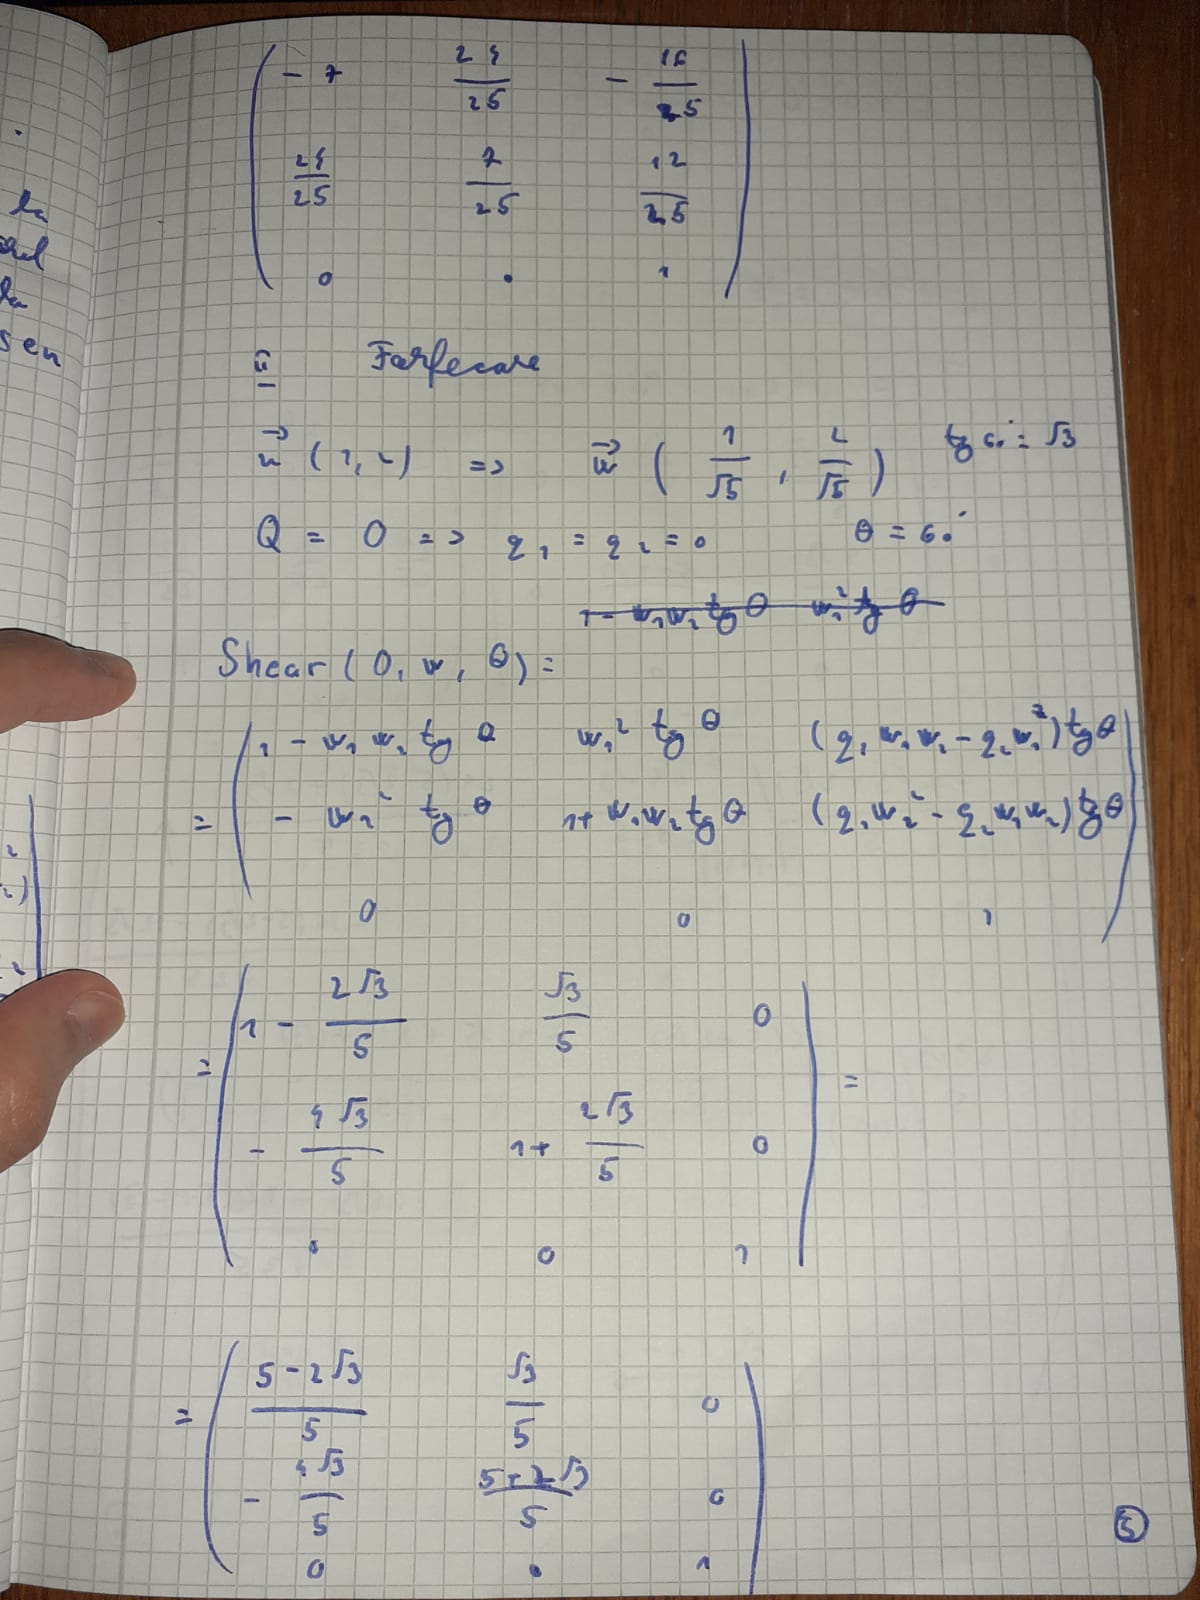 - 7 24/25 - 16/25
24/25 7/25 12/25
0 0 1
ii Forfecare
u⃗ (1, 2) => w⃗ ( 1/√5 , 2/√5 ) tg 60° = √3
Q = O => q₁ = q₂ = 0 θ = 60°
1 - w₁w₂ tg θ w₁² tg θ
Shear (O, w, θ) =
= ( 1 - w₁ w₂ tg θ w₁² tg θ (q₁ w₁ w₂ - q₂ w₁²) tg θ
- w₂² tg θ 1 + w₁ w₂ tg θ (q₁ w₂² - q₂ w₁ w₂) tg θ
0 0 1 )
= ( 1 - 2√3/5 √3/5 0
- 4√3/5 1 + 2√3/5 0
0 0 1 ) =
= ( 5 - 2√3/5 √3/5 0
- 4√3/5 5 + 2√3/5 0
0 0 1 )
5